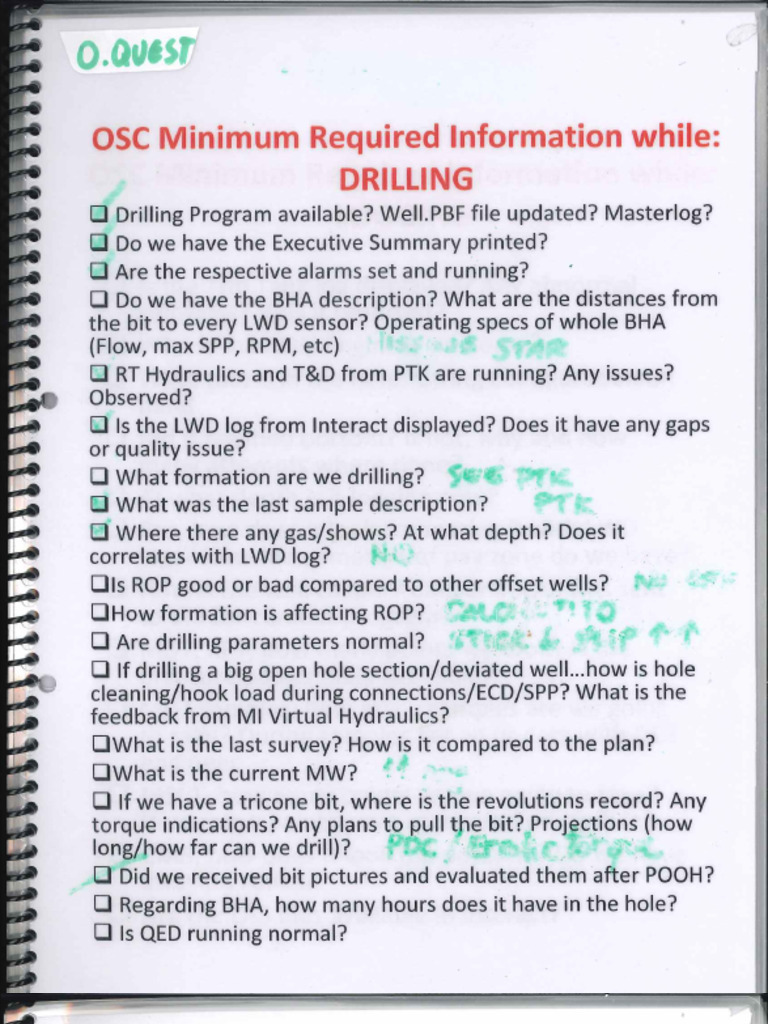 O.QUEST
OSC Minimum Required Information while:
DRILLING
❑ Drilling Program available? Well.PBF file updated? Masterlog?
❑ Do we have the Executive Summary printed?
❑ Are the respective alarms set and running?
❑ Do we have the BHA description? What are the distances from
the bit to every LWD sensor? Operating specs of whole BHA
(Flow, max SPP, RPM, etc) STAR
❑ RT Hydraulics and T&D from PTK are running? Any issues?
Observed?
❑ Is the LWD log from Interact displayed? Does it have any gaps
or quality issue?
❑ What formation are we drilling? SEE PTK
❑ What was the last sample description? PTK
❑ Where there any gas/shows? At what depth? Does it
correlates with LWD log? NO
❑Is ROP good or bad compared to other offset wells? NO
❑How formation is affecting ROP?
❑ Are drilling parameters normal? STICK & SLIP ↑ ↑
❑ If drilling a big open hole section/deviated well...how is hole
cleaning/hook load during connections/ECD/SPP? What is the
feedback from MI Virtual Hydraulics?
❑What is the last survey? How is it compared to the plan?
❑What is the current MW?
❑ If we have a tricone bit, where is the revolutions record? Any
torque indications? Any plans to pull the bit? Projections (how
long/how far can we drill)? PDC / Erratic Torque
❑ Did we received bit pictures and evaluated them after POOH?
❑ Regarding BHA, how many hours does it have in the hole?
❑ Is QED running normal?